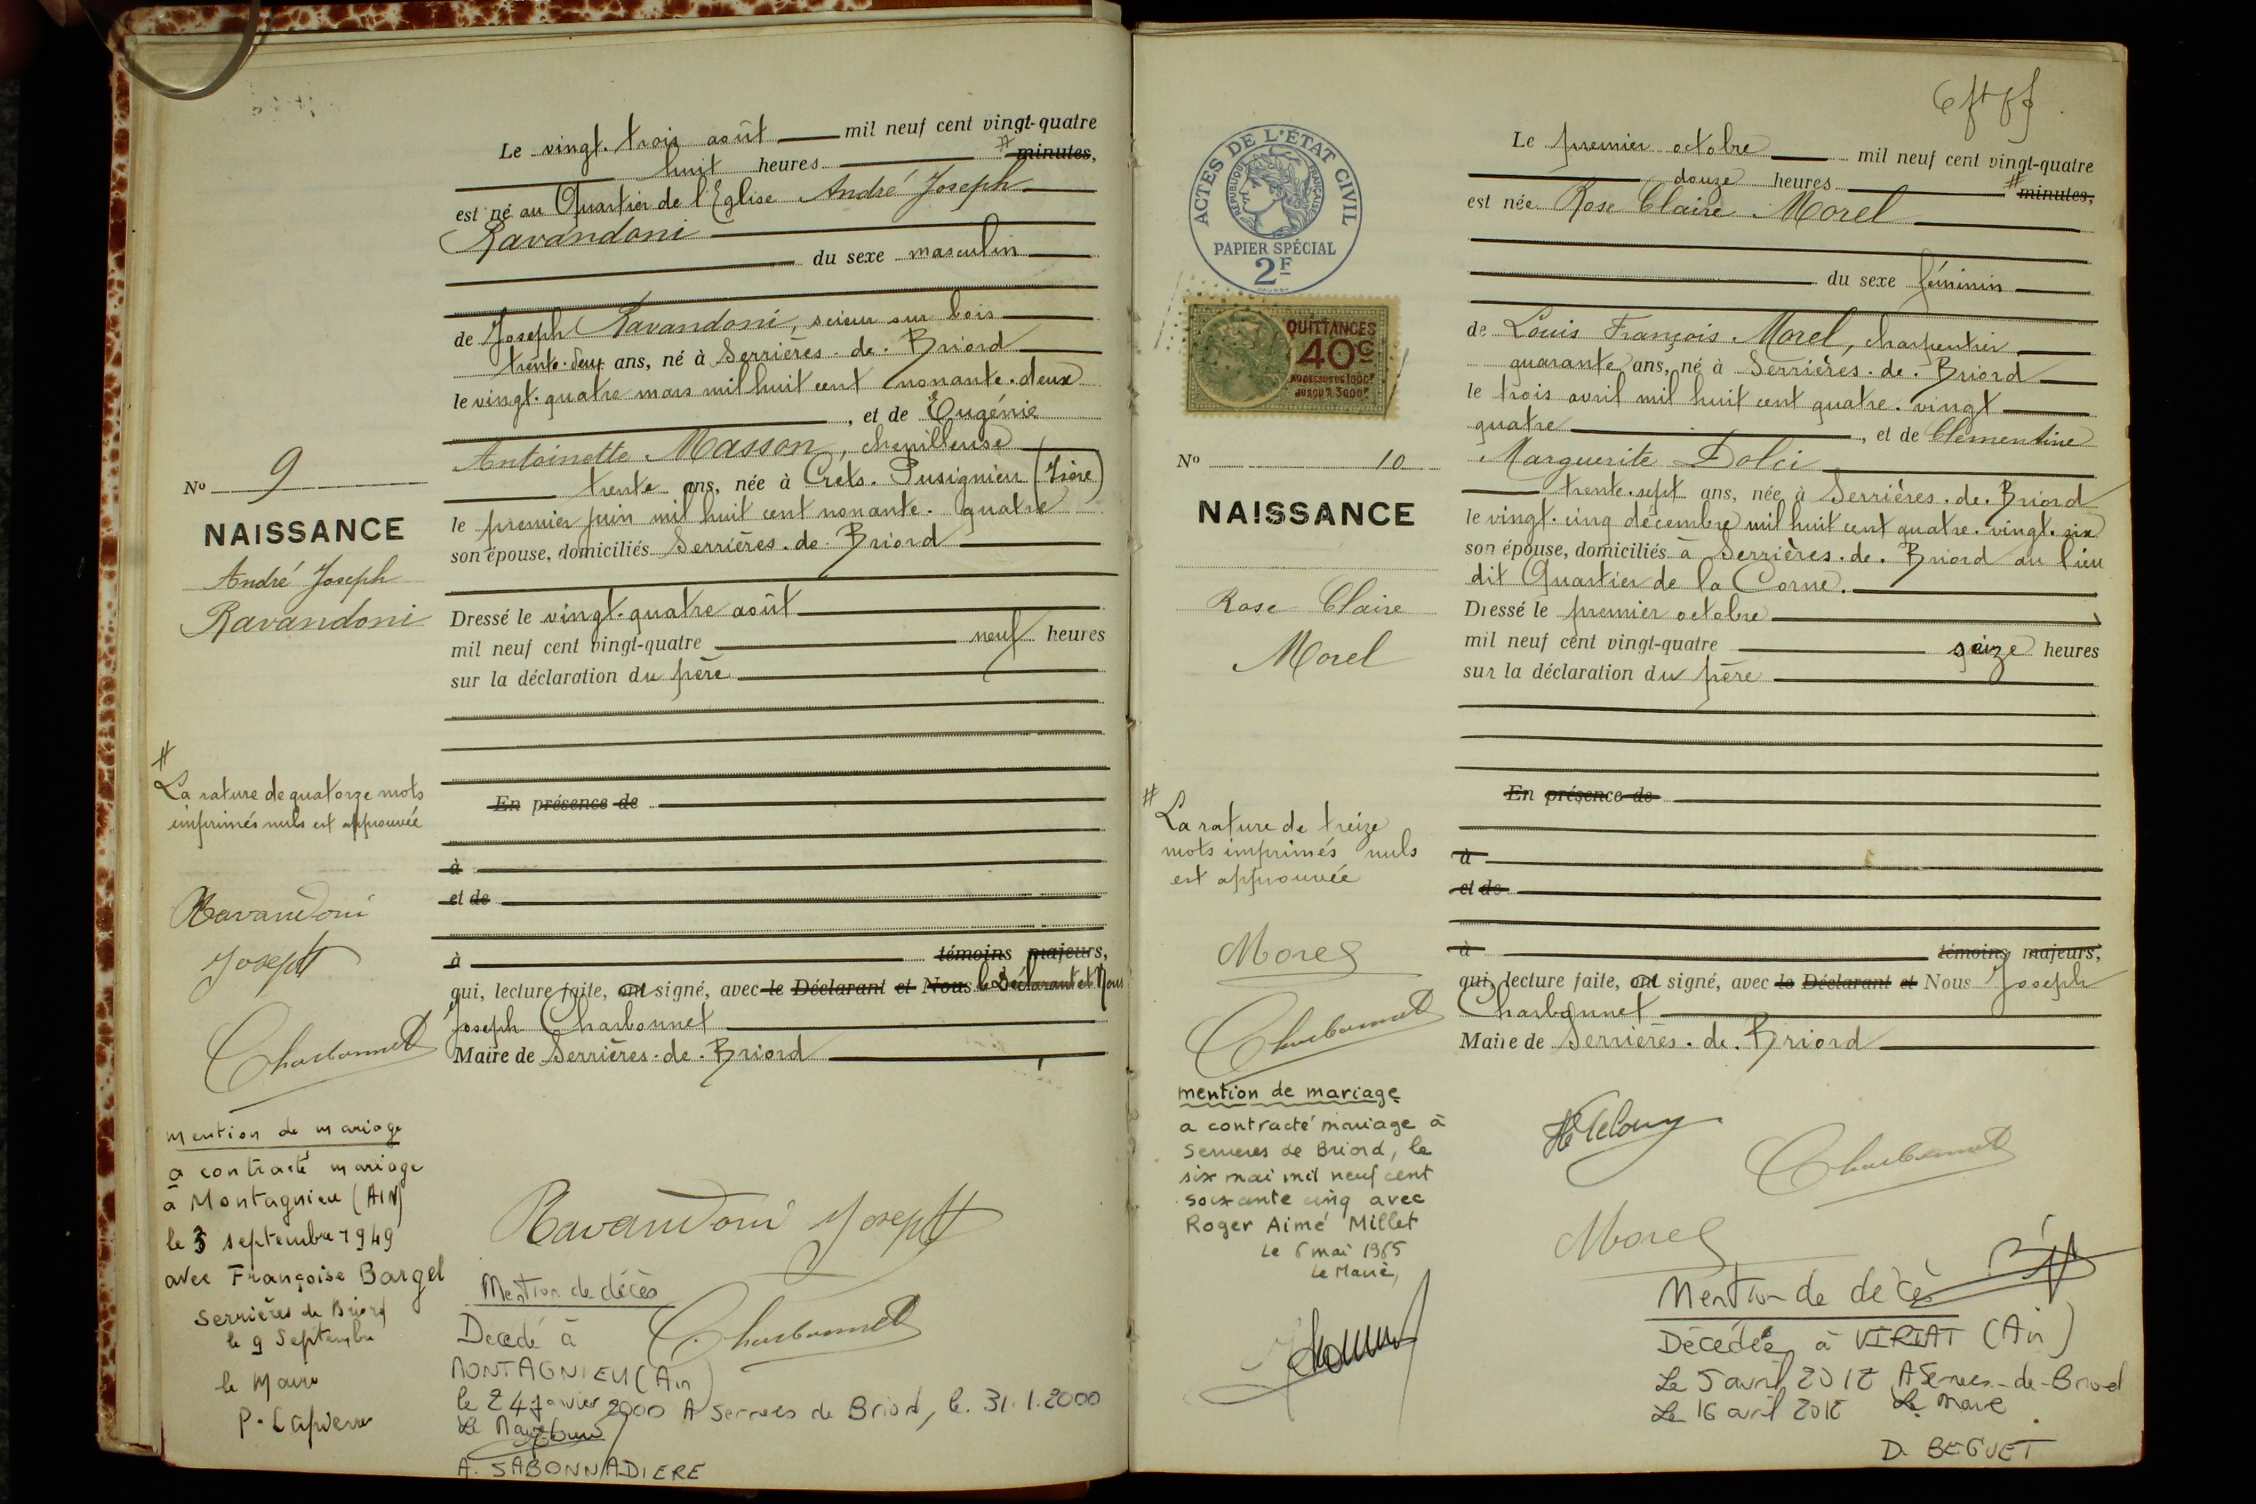 Le vingt-trois août mil neuf cent vingt-quatre
huit heures # minutes,
est né au Quartier de l'Eglise André Joseph
Ravandoni
du sexe masculin
de Joseph Ravandoni, scieur sur bois
trente-deux ans, né à Serrières-de-Briord
le vingt-quatre mars mil huit cent nonante-deux
, et de Eugénie
Antoinette Masson, chenilleuse
trente ans, née à Crets-Pusignieu (Isère)
le premier juin mil huit cent nonante-quatre
son épouse, domiciliés Serrières-de-Briord
Dressé le vingt-quatre août
mil neuf cent vingt-quatre neuf heures
sur la déclaration du père
En présence de
à
et de
à témoins majeurs,
qui, lecture faite, ont signé, avec le Déclarant et Nous le Déclarant et Nous
Joseph Charbonnet
Maire de Serrières-de-Briord
No 9
NAISSANCE
André Joseph
Ravandoni
#
La rature de quatorze mots
imprimés nuls est approuvée
Ravandoni
Joseph
Charbonnet
Mention de mariage
a contracté mariage
à Montagnieu (AIN)
le 3 septembre 1949
avec Françoise Bargel
Serrières de Briord
le 9 Septembre
le Maire
P. Lapierre
Ravandoni Joseph
Charbonnet
Mention de décès
Decedé à
MONTAGNIEU (Ain)
le 24 janvier 2000 A Serrières de Briord, le 31.1.2000
Le Maire
A. SABONNADIERE
ACTES DE L'ÉTAT CIVIL
RÉPUBLIQUE FRANÇAISE
PAPIER SPÉCIAL
2F
QUITTANCES
40c
AU DESSUS DE 1000F
JUSQU'A 3000F
No 10
NAISSANCE
Rose Claire
Morel
#
La rature de treize
mots imprimés nuls
est approuvée
Morel
Charbonnet
mention de mariage
a contracté mariage à
Serrières de Briord, le
six mai mil neuf cent
soixante cinq avec
Roger Aimé Millet
Le 6 mai 1965
Le Maire,
Le premier octobre mil neuf cent vingt-quatre
douze heures # minutes,
est née Rose Claire Morel
du sexe féminin
de Louis François Morel, charpentier
quarante ans, né à Serrières-de-Briord
le trois avril mil huit cent quatre-vingt
quatre, et de Clémentine
Marguerite Dolci
trente-sept ans, née à Serrières-de-Briord
le vingt-cinq décembre mil huit cent quatre-vingt-six
son épouse, domiciliés à Serrières-de-Briord au lieu
dit Quartier de la Corne.
Dressé le premier octobre
mil neuf cent vingt-quatre seize heures
sur la déclaration du père
En présence de
à
et de
à témoins majeurs,
qui, lecture faite, ont signé, avec le Déclarant et Nous Joseph
Charbonnet
Maire de Serrières-de-Briord
Charbonnet
Morel
Mention de décès
Décédée à VIRIAT (Ain)
Le 5 avril 2012 A Serrières-de-Briord
Le 16 avril 2012 Le Maire
D. BEGUET